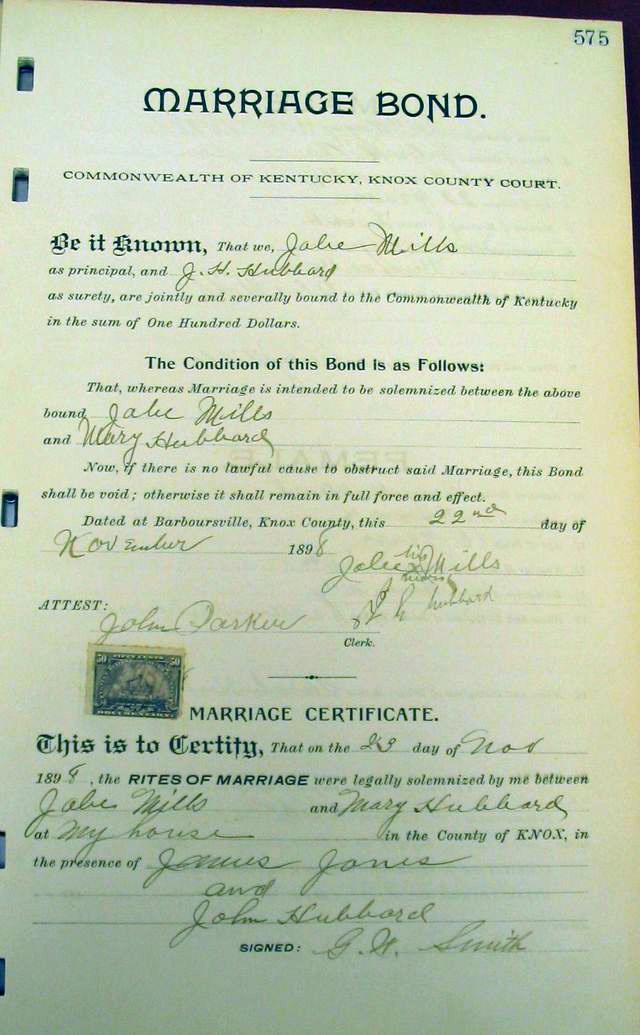 575
MARRIAGE BOND.
COMMONWEALTH OF KENTUCKY, KNOX COUNTY COURT.
Be it Known, That we, Jabe Mills
as principal, and J. H. Hubbard
as surety, are jointly and severally bound to the Commonwealth of Kentucky
in the sum of One Hundred Dollars.
The Condition of this Bond is as Follows:
That, whereas Marriage is intended to be solemnized between the above
bound Jabe Mills
and Mary Hubbard
Now, if there is no lawful cause to obstruct said Marriage, this Bond
shall be void; otherwise it shall remain in full force and effect.
Dated at Barboursville, Knox County, this 22nd day of
November 1898
his
Jabe x Mills
mark
Hubbard
ATTEST:
John Parker
Clerk.
50 50
DOCUMENTARY
MARRIAGE CERTIFICATE.
This is to Certify, That on the 23 day of Nov
1898, the RITES OF MARRIAGE were legally solemnized by me between
Jabe Mills and Mary Hubbard
at My house in the County of KNOX, in
the presence of James Jones
and
John Hubbard
SIGNED: G. W. Smith